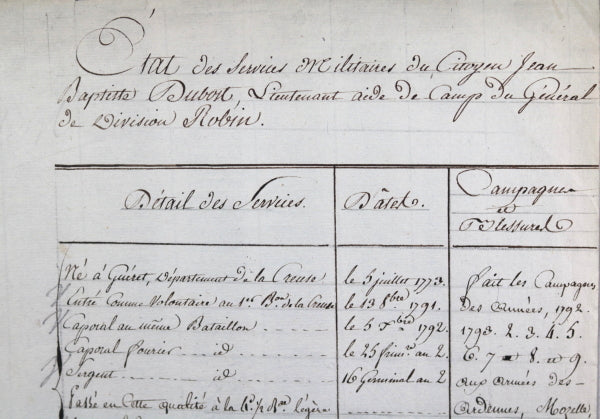 État des Services Militaires du Citoyen Jean
Baptiste Dubost, Lieutenant aide de Camp du Général
de Division Robin.
Détail des Services.
Dâtes.
Campagnes
et
Blessures
Né à Guéret, Département de la Creuse
le 5 juillet 1773.
fait les Campagnes
Entré Comme Volontaire au 1er Bon. de la Creuse
le 13 8bre 1791.
des années, 1792.
Caporal au même Bataillon
le 5 7bre 1792.
1793. 2. 3. 4. 5.
Caporal fourier id
le 25 frimre au 2.
6. 7 8. 9.
Sergent id
16 Germinal au 2
aux armées des
Passé en Cette qualité à la 1/2 légère
Ardennes, Mozelle